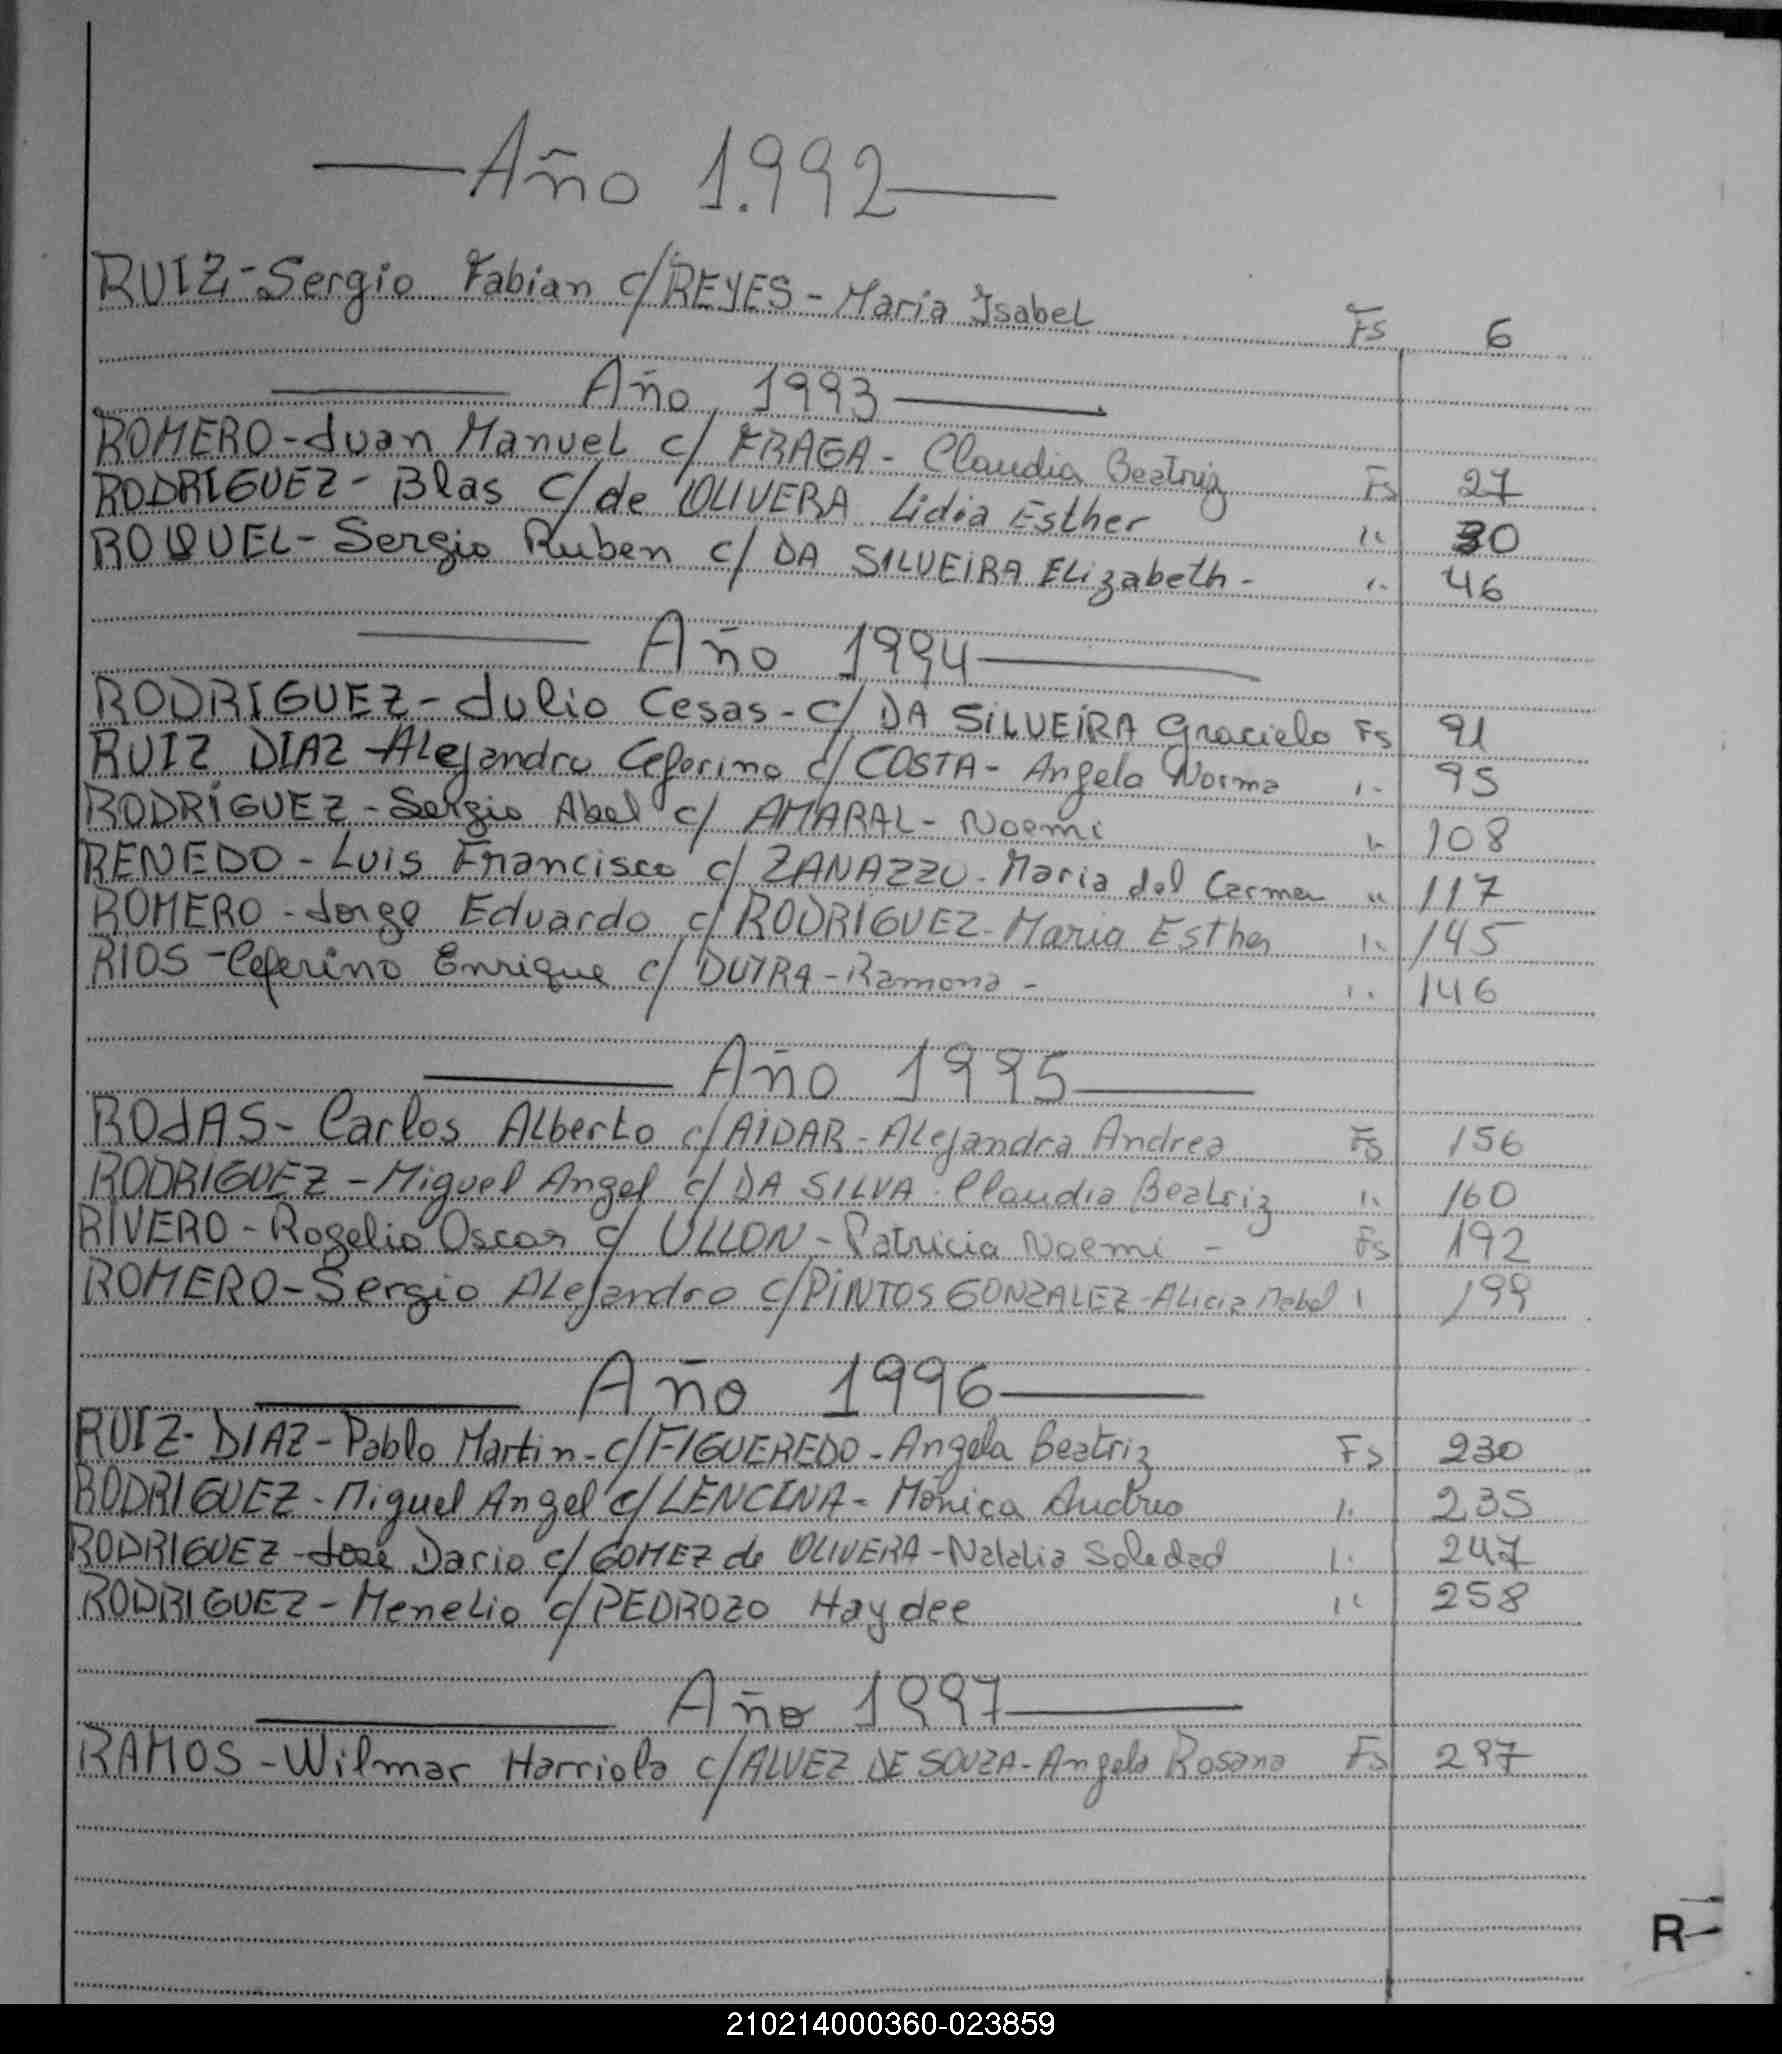 Año 1.992
RUIZ - Sergio Fabian c/ REYES - Maria Isabel Fs 6
Año 1993
ROMERO - Juan Manuel c/ FRAGA - Claudia Beatriz Fs 27
RODRIGUEZ - Blas c/ de OLIVERA Lidia Esther " 30
ROQUEL - Sergio Ruben c/ DA SILVEIRA Elizabeth - " 46
Año 1994
RODRIGUEZ - Julio Cesar - c/ DA SILVEIRA Graciela Fs 91
RUIZ DIAZ - Alejandro Ceferino c/ COSTA - Angela Norma " 95
RODRIGUEZ - Sergio Abel c/ AMARAL - Noemi " 108
RENEDO - Luis Francisco c/ ZANAZZO - Maria del Carmen " 117
ROMERO - Jorge Eduardo c/ RODRIGUEZ - Maria Esther " 145
RIOS - Ceferino Enrique c/ DUTRA - Ramona - " 146
Año 1995
RODAS - Carlos Alberto c/ AIDAR - Alejandra Andrea Fs 156
RODRIGUEZ - Miguel Angel c/ DA SILVA - Claudia Beatriz " 160
RIVERO - Rogelio Oscar c/ ULLON - Patricia Noemi - Fs 192
ROMERO - Sergio Alejandro c/ PINTOS GONZALEZ - Alicia Mabel " 199
Año 1996
RUIZ - DIAZ - Pablo Martin - c/ FIGUEREDO - Angela Beatriz Fs 230
RODRIGUEZ - Miguel Angel c/ LENCINA - Monica Andrea " 235
RODRIGUEZ - José Dario c/ GOMEZ de OLIVERA - Natalia Soledad " 247
RODRIGUEZ - Menelio c/ PEDROZO Haydee " 258
Año 1997
RAMOS - Wilmar Harriola c/ ALVEZ DE SOUZA - Angela Rosana Fs 297
R
210214000360-023859